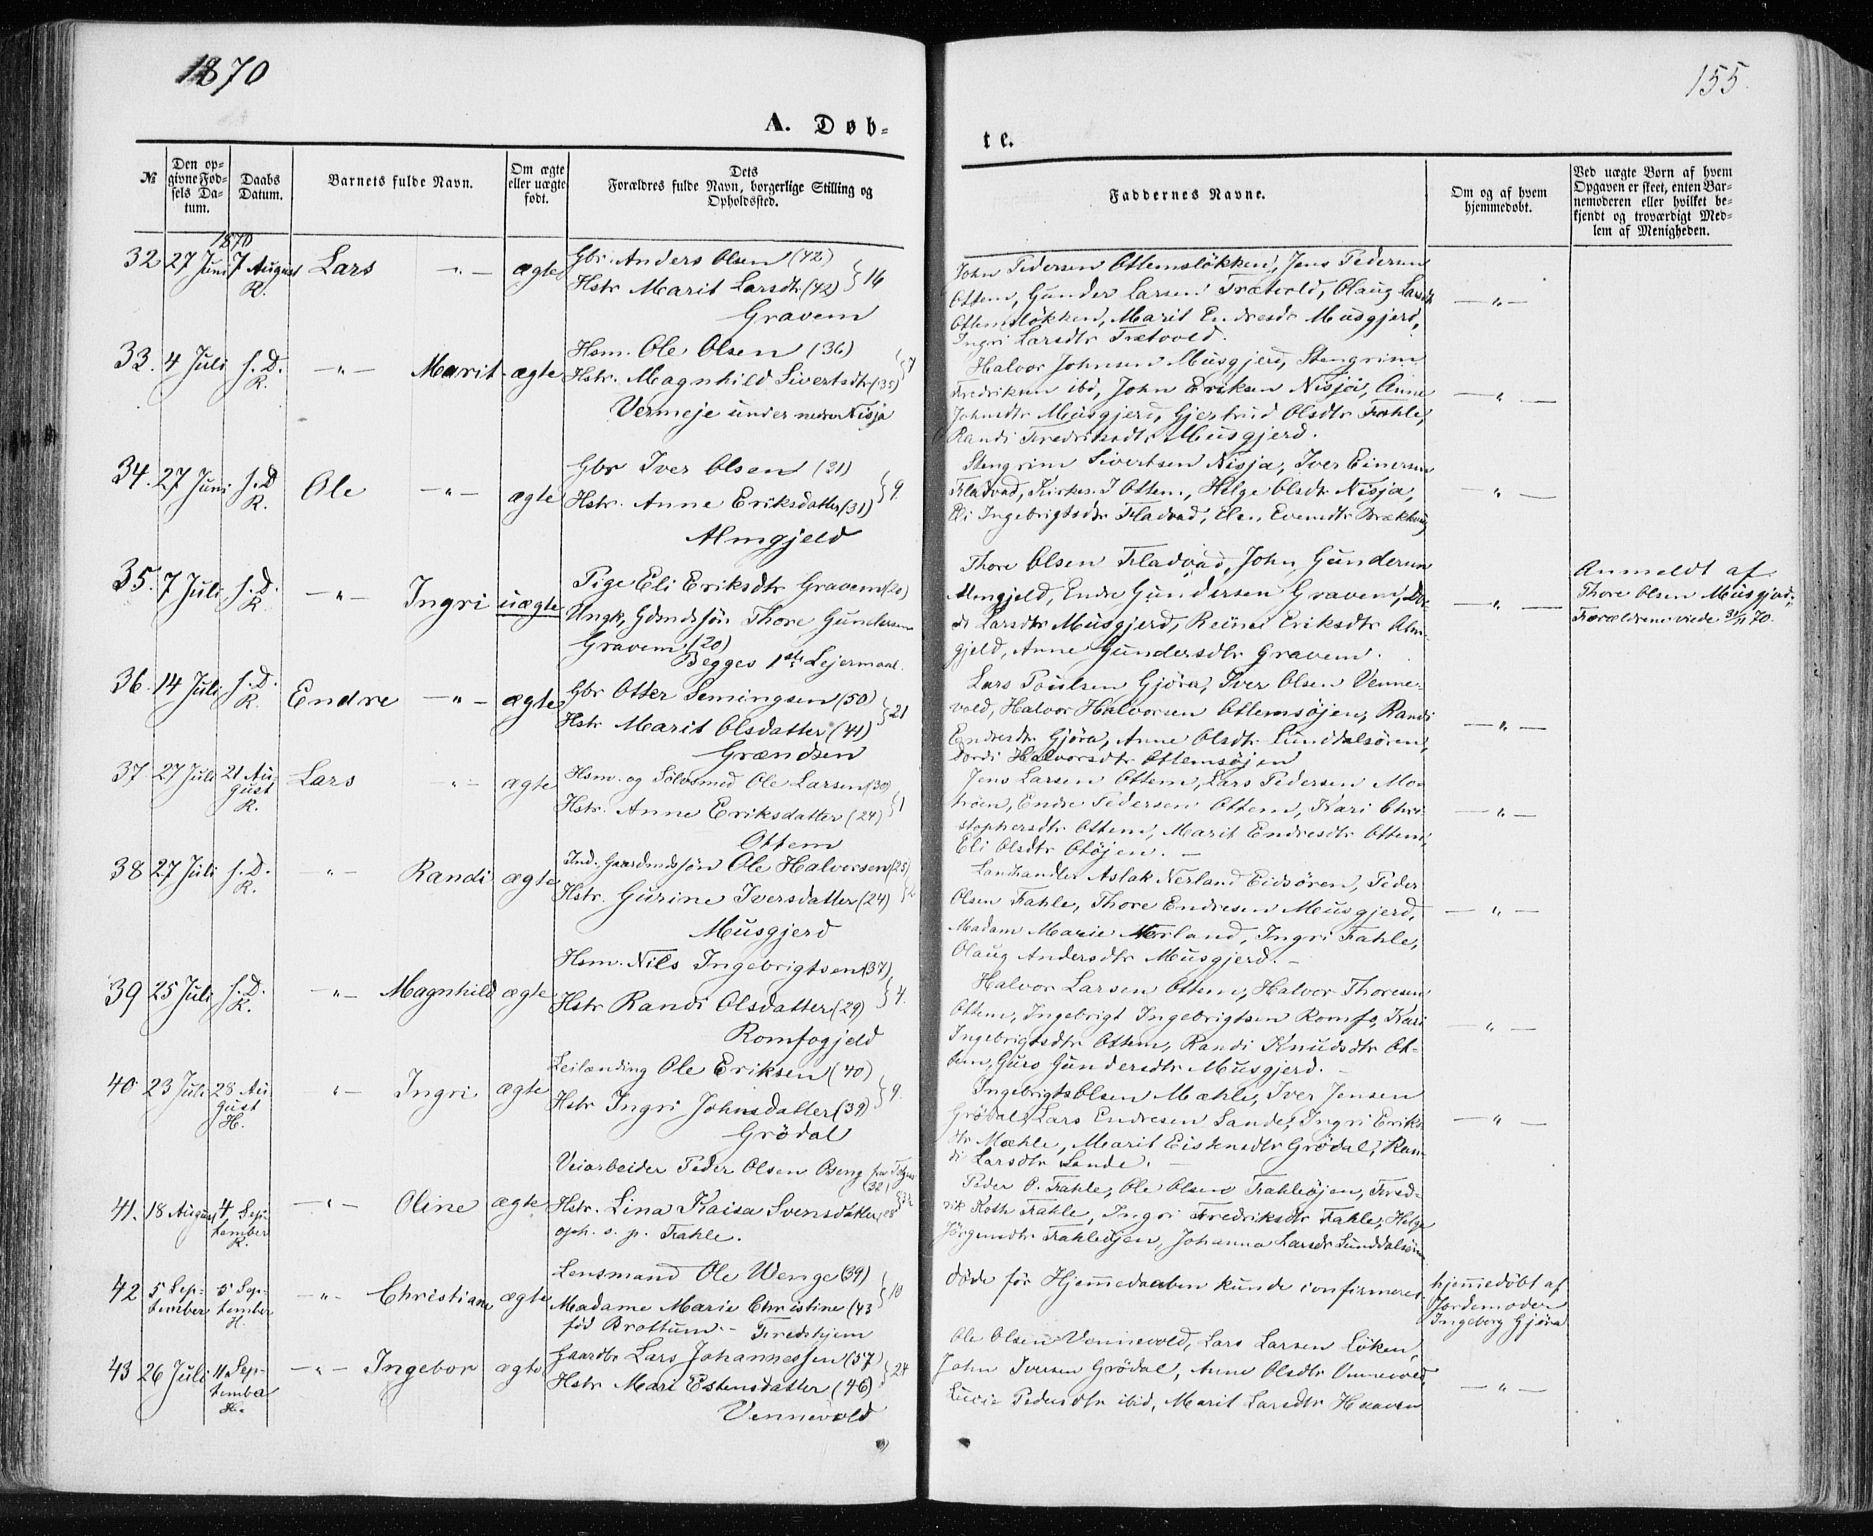 1870
155.
A. Døb-
te.
№
Den opgivne Fødsels Datum.
Daabs Datum.
Barnets fulde Navn.
Om ægte eller uægte født.
Dets Forældres fulde Navn, borgerlige Stilling og Opholdssted.
Faddernes Navne.
Om og af hvem hjemmedøbt.
Ved uægte Børn af hvem Opgaven er skeet, enten Barnemoderen eller hvilket bekjendt og troværdigt Medlem af Menigheden.
32 27 Juni 1870 7 August R. Lars -"- ægte
Gbr. Anders Olsen (42)
Hstr Marit Larsdtr (42) } 16
Gravem
John Pedersen Ottemsløkken, Jens Pedersen
Ottem, Gunder Larsen Trætvold, Olaug Larsdtr
Ottemsløkken, Marit Endresdtr Musgjerd,
Ingri Larsdtr Trætvold.
-"-
33. 4 Juli s. D. R. -"- Marit ægte
Hsm. Ole Olsen (36)
Hstr. Magnhild Sivertsdtr (35) } 7
Vermeje under nedre Nisja
Halvor Johnsen Musgjerd, Stengrim
Fredriksen ibd, John Eriksen Nisja, Anne
Johnsdtr Musgjerd, Gjertrud Olsdtr Fahle,
Randi Fredriksdtr Musgjerd.
-"-
34. 27 Juni s. D. R. Ole -"- ægte
Gbr Iver Olsen (31)
Hstr. Anne Eriksdatter (31) } 9.
Almgjeld
Stengrim Sivertsen Nisja, Iver Einersen
Fladvad, Kirkes. J Ottem, Helge Olsdtr Nisja,
Eli Ingebrigtsdtr Fladvad, Elen Evensdtr Brækken
-"-
35. 7 Juli s. D. R. -"- Ingri uægte
Pige Eli Eriksdtr Gravem (20)
Ungk, Gdmdssøn Thore Gundersen
Gravem (20)
Begges 1ste Lejermaal.
Thore Olsen Fladvad, John Gundersen
Almgjeld, Endre Gundersen Gravem, Dor-
di Larsdtr Musgjerd, Reinei Eriksdtr Alm-
gjeld, Anne Gundersdtr Gravem.
-"-
Anmeldt af
Thore Olsen Musgjerd;
Forældrene viede 3/11 70.
36. 14 Juli s. D. R. Endre -"- ægte
Gbr Otter Semingsen (50)
Hstr Marit Olsdatter (41) } 21
Grændsen
Lars Poulsen Gjøra, Iver Olsen Venne-
vold, Halvor Halvorsen Ottemsøjen, Randi
Endresdtr Gjøra, Anne Olsdtr Sunddalsøren,
Dordi Halvorsdtr Ottemsøjen
-"-
37 27 Juli 21 August R. Lars -"- ægte
Hsm. og Sølvsmed Ole Larsen (30)
Hstr. Anne Eriksdatter (24) } 1
Ottem
Jens Larsen Ottem, Lars Pedersen Mo-
røen, Endre Pedersen Ottem, Kari Chri-
stophersdtr Ottem, Marit Endresdtr Ottem,
Eli Olsdtr Otøjen. -
-"-
38 27 Juli s. D. R. -"- Randi ægte
Ind. Gaardmdssøn Ole Halvorsen (25)
Hstr. Gurine Iversdatter (24)
Musgjerd
Landhandler Aslak Nerland Eidsøren, Peder
Olsen Fahle, Thore Endresen Musgjerd,
Madam Marie Nerland, Ingri Fahle,
Olaug Andersdtr Musgjerd. -
-"-
39 25 Juli s. D. R. -"- Magnhild ægte
Hsm. Nils Ingebrigtsen (37)
Hstr Randi Olsdatter (29) } 4.
Romfogjeld
Halvor Larsen Ottem, Halvor Thoresen
Ottem, Ingebrigt Ingebrigtsen Romfo, Kari
Ingebrigtsdtr Ottem, Randi Knudsdtr Ot-
tem, Guro Gundersdtr Musgjerd. -
-"-
40 23 Juli 28 August H. -"- Ingri ægte
Leilænding Ole Eriksen (40)
Hstr Ingri Johnsdatter (39) } 9.
Grödal
Ingebrigt Olsen Mæhle, Iver Jensen
Grödal, Lars Endresen Sande, Ingri Eriks-
dtr Mæhle, Marit Eistensdtr Grödal, Ran-
di Larsdtr Sande. -
-"-
41. 18 August 4 September R. -"- Oline ægte
Veiarbeider Peder Olsen Øseng fra
(32)
Hstr. Lina Kaisa Svensdatter (28
oph. s. p. Fahle.
Peder O. Fahle, Ole Olsen Fahleøjen, Fred-
rik Roth Fahle, Ingri Fredriksdtr Fahle, Helge
Jörgensdtr Fahleøjen, Johanna Larsdtr Sunddalsøren
42 5 September 5 September H. -"- Christiane ægte
Lensmand Ole Wenge (39)
Madame Marie Christine (43 } 10
fød Brottum - Fredshjem
døde før Hjemmedaaben kunde confirmeres
hjemmedøbt af
Jordemoder
Ingeborg Gjøra
43 26 Juli 11 September H. -"- Ingebor ægte
Gaardbr Lars Johannessen (57)
Hstr Mari Estensdatter (46) } 24
Vennevold
Ole Olsen Vennevold, Lars Larsen Løken,
John Iversen Grödal, Anne Olsdtr Vennevold,
Lucie Pedersdtr ibid, Marit Larsdtr Haaven
-"-